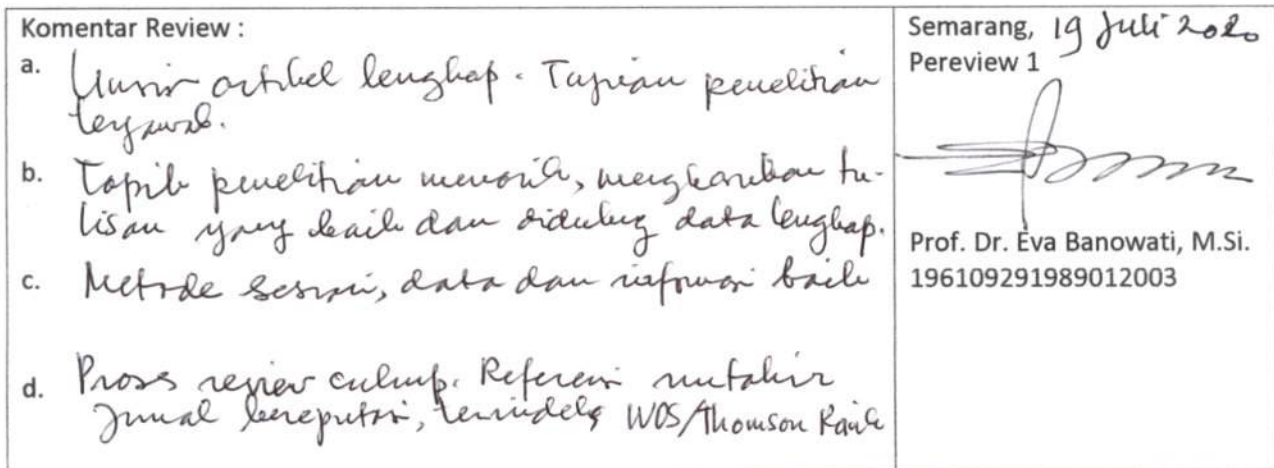 Komentar Review :
a. Unsur artikel lengkap. Tujuan penelitian
terjawab.
b. Topik penelitian menarik, menghasilkan tu-
lisan yang baik dan didukung data lengkap.
c. Metode sesuai, data dan informasi baik
d. Proses review cukup. Referensi mutahir
Jurnal bereputasi, terindeks WOS/Thomson
Semarang, 19 Juli 2020
Pereview 1
Prof. Dr. Eva Banowati, M.Si.
196109291989012003